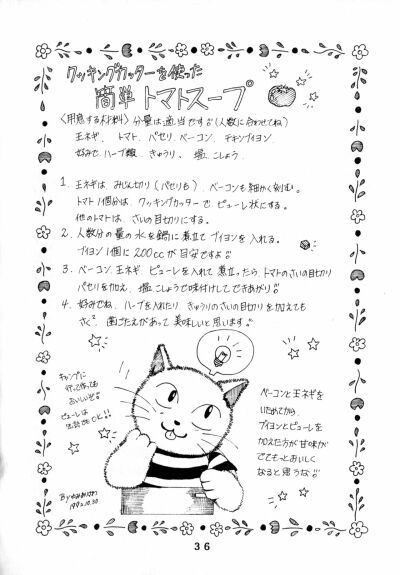 クッキングカッターを使った
簡単トマトスープ
〈用意する材料〉分量は適当です。(人数に合わせてね)
玉ネギ、トマト、パセリ、ベーコン、チキンブイヨン、
好みで、ハーブ類、きゅうり、塩、こしょう
1. 玉ネギは、みじん切り(パセリも)、ベーコンも細かく刻む。
トマト1個分は、クッキングカッターでピューレ状にする。
他のトマトは、さいの目切りにする。
2. 人数分の量の水を鍋に煮立てブイヨンを入れる。
ブイヨン1個に200ccが目安ですよ。
3. ベーコン、玉ネギ、ピューレを入れて煮立ったら、トマトのさいの目切り
パセリを加え、塩、こしょうで味付けしてできあがり。
4. 好みでね、ハーブを入れたり、きゅうりのさいの目切りを加えても
さくさく歯ごたえがあって美味しいと思います。
キャンプに
行って作っても
おいしいぞ!
ピューレは
缶詰でもOK!!
ベーコンと玉ネギを
いためてから、
ブイヨンとピューレを
加えた方が甘味が
でてもっとおいしく
なると思うな。
By
199
.10.30
36